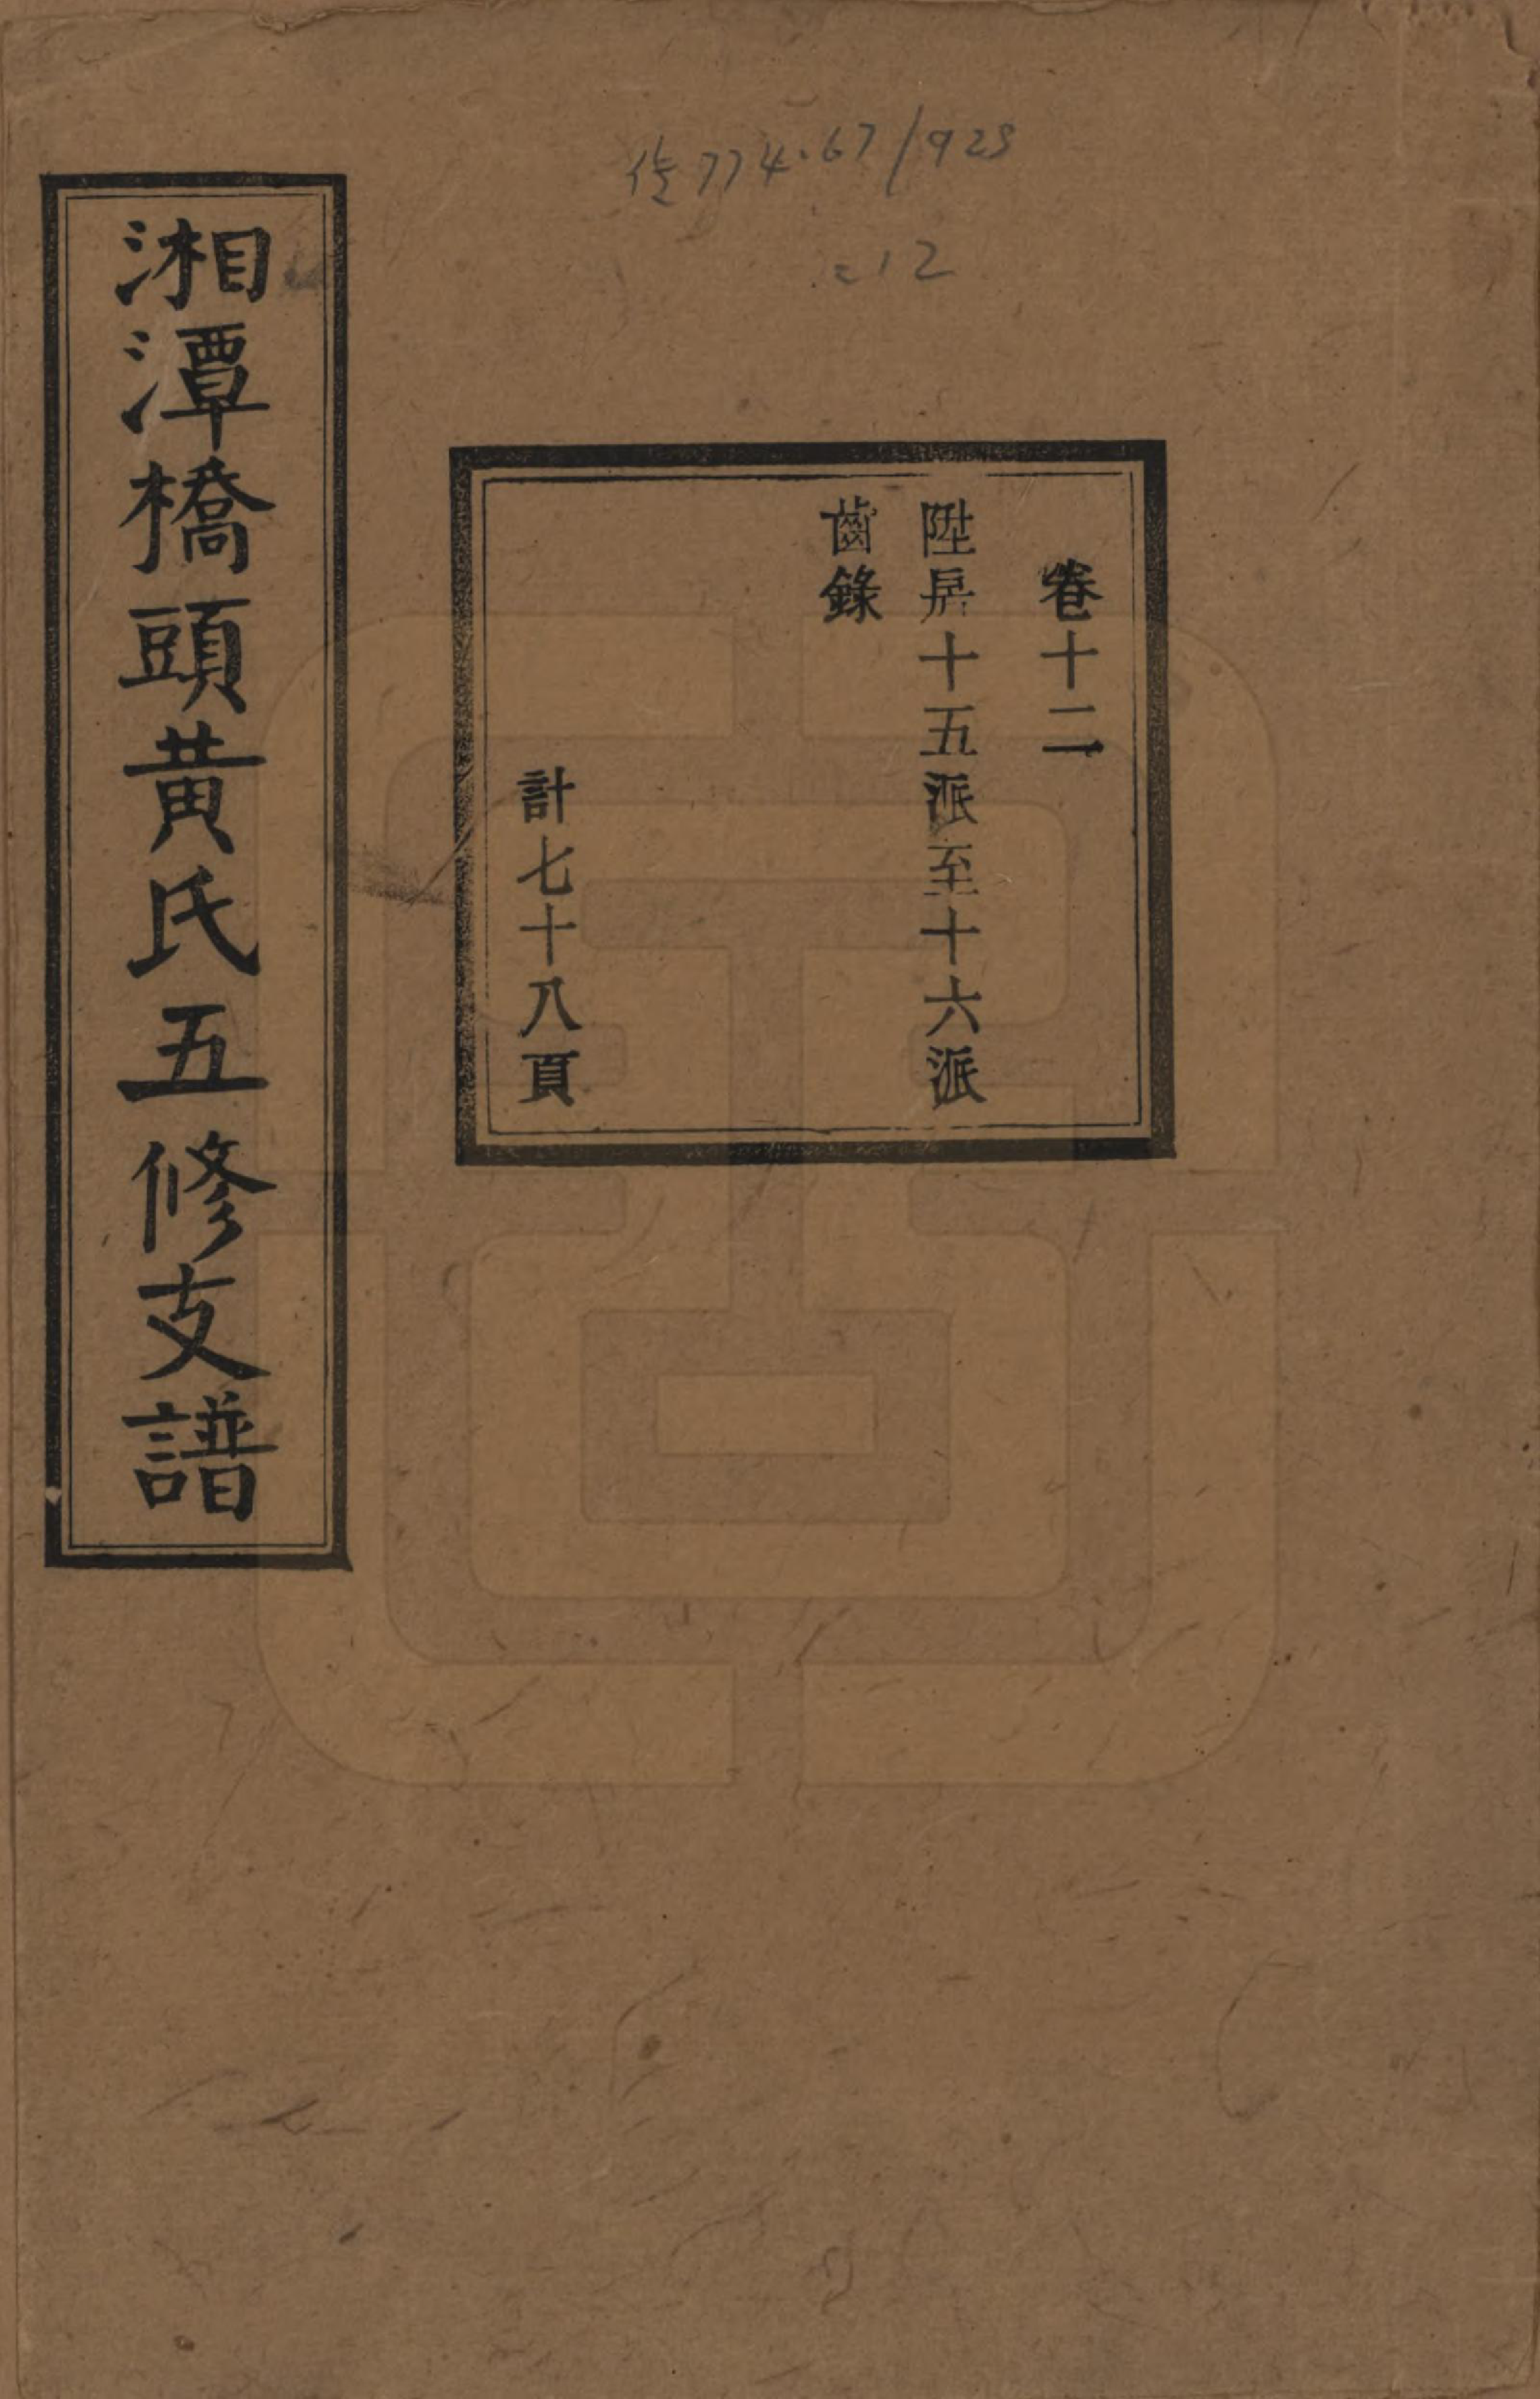 湘潭橋頭黃氏五修支譜
卷十二
陞房十五派至十六派
齒錄
計七十八頁
774.67/928
:12